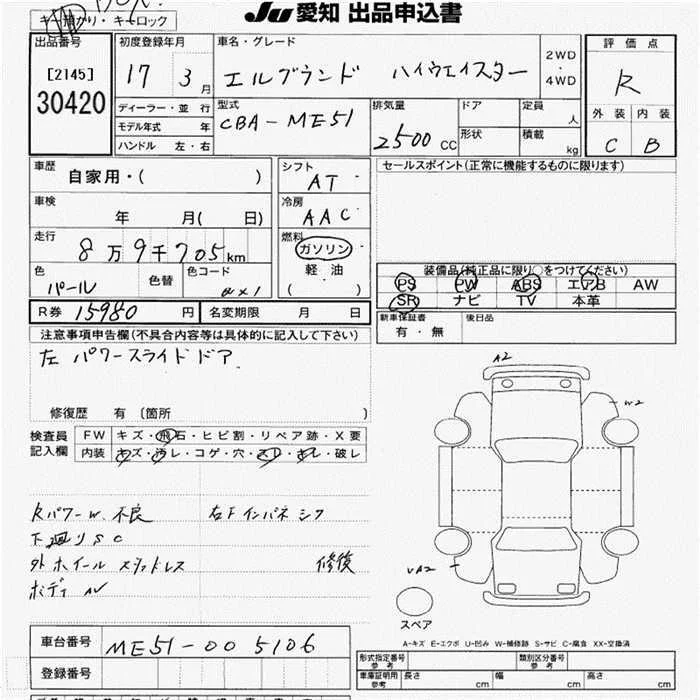 JU 愛知 出品申込書
キー預かり・キーロック
出品番号
[2145]
30420
初度登録年月
17 3月
車名・グレード
エルグランド ハイウェイスター
2WD
・
4WD
評価点
R
外装 内装
C B
ディーラー・並行
モデル年式 年
ハンドル 左・右
型式
CBA-ME51
排気量
2500 CC
ドア
形状
定員 人
積載 kg
車歴
自家用・( )
シフト
AT
セールスポイント(正常に機能するものに限ります)
車検
年 月( 日)
冷房
AAC
走行
8万9千705km
燃料
ガソリン
軽油
( )
色
パール
色替
色コード
QX1
装備品(純正品に限り○をつけてください)
PS PW ABS エアB AW
SR ナビ TV 本革
R券 15980 円
名変期限 月 日
新車保証書
有・無
後日品
注意事項申告欄(不具合内容等は具体的に記入して下さい)
左 パワースライドドア
修復歴 有 〔箇所 〕
検査員
記入欄
FW キズ・飛石・ヒビ割・リペア跡・X要
内装 キズ・汚レ・コゲ・穴・スレ・キレ・破レ
RパワーW.不良 右F インパネ シワ
下廻りSC
外ホイール スタッドレス 修復
ボディ AV
A2
W2
UA2
スペア
A-キズ E-エクボ U-凹み W-補修跡 S-サビ C-腐食 XX-交換済
車台番号 ME51-005106
登録番号
形式指定番号
参考
類別区分番号
参考
車庫証明用
参考
長さ cm 幅 cm 高さ cm